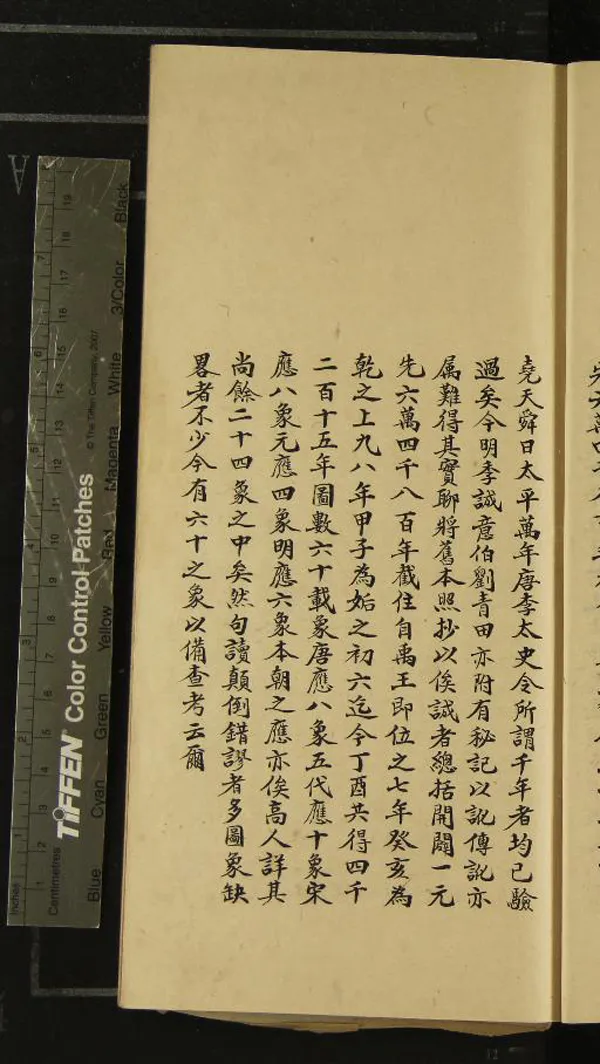 堯天舜日太平萬年唐李太史令所謂千年者均已驗
過矣今明李誠意伯劉青田亦附有秘記以訛傳訛亦
属難得其實聊將舊本照抄以俟誠者總括開闢一元
先六萬四千八百年截住自禹王即位之七年癸亥為
乾之上九八年甲子為姤之初六迄今丁酉共得四千
二百十五年圖數六十載象唐應八象五代應十象宋
應八象元應四象明應六象本朝之應亦俟高人詳其
尚餘二十四象之中矣然句讀顛倒錯謬者多圖象缺
畧者不少今有六十之象以備查考云爾
TIFFEN Color Control Patches
© The Tiffen Company, 2007
Inches
Centimetres
1 2 3 4 5 6 7 8 9 10 11 12 13 14 15 16 17 18 19
Blue Cyan Green Yellow Red Magenta White 3/Color Black
A